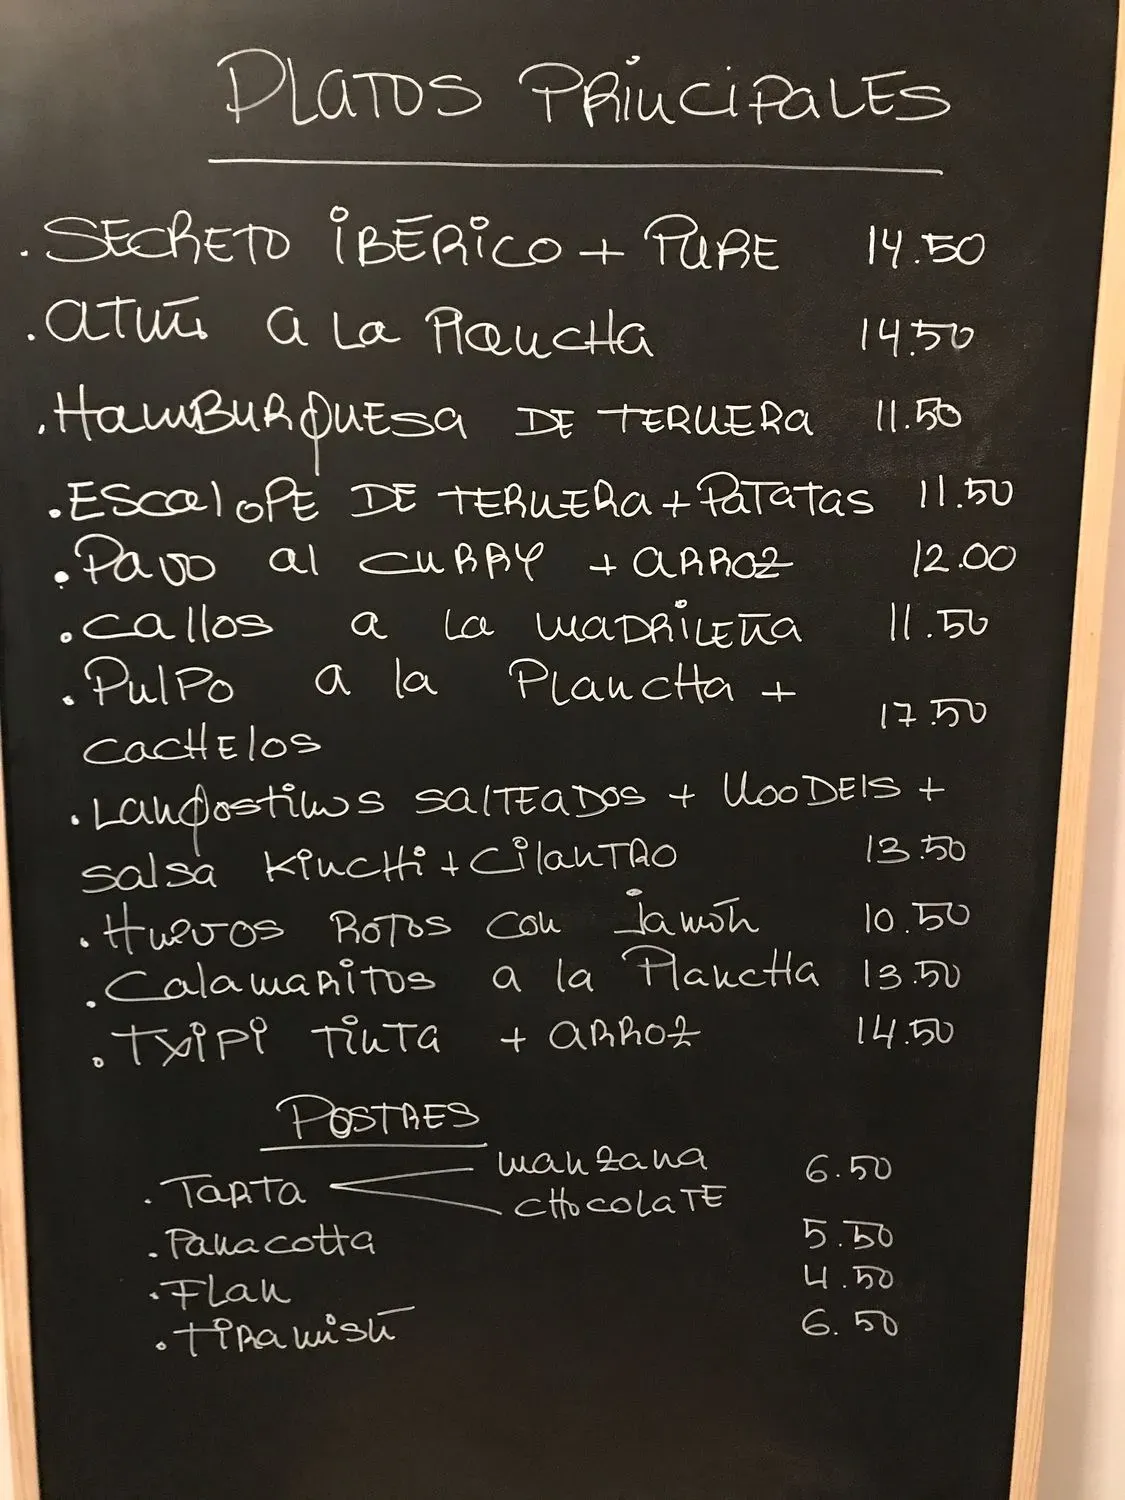 PLATOS PRINCIPALES
. SECRETO IBÉRICO + PURE 14.50
. ATÚN A LA PLANCHA 14.50
. HAMBURGUESA DE TERNERA 11.50
. ESCALOPE DE TERNERA + PATATAS 11.50
. PAVO AL CURRY + ARROZ 12.00
. CALLOS A LA MADRILEÑA 11.50
. PULPO A LA PLANCHA +
CACHELOS 17.50
. LANGOSTINOS SALTEADOS + NOODELS +
SALSA KINCHI + CILANTRO 13.50
. HUEVOS ROTOS CON JAMÓN 10.50
. CALAMARITOS A LA PLANCHA 13.50
. TXIPI TINTA + ARROZ 14.50
POSTRES
. TARTA MANZANA 6.50
CHOCOLATE
. PANACOTTA 5.50
. FLAN 4.50
. TIRAMISÚ 6.50